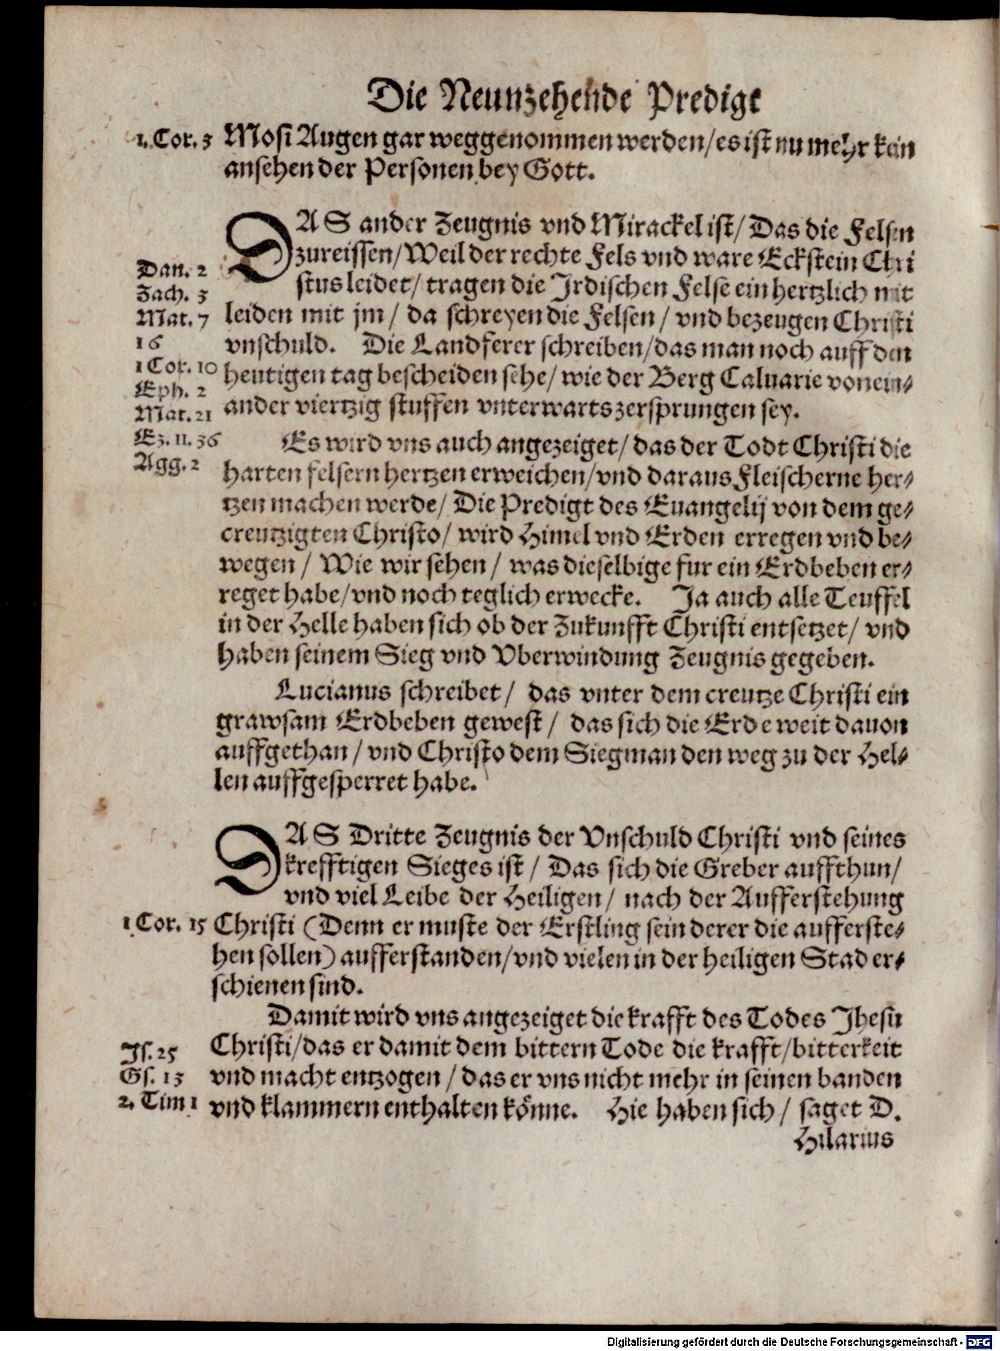 Die Neunzehende Predigt
1. Cor. 3 Mosi Augen gar weggenommen werden/ es ist nu mehr kein
ansehen der Personen bey Gott.
DAS ander Zeugnis vnd Mirackel ist/ Das die Felsen
zureissen/ Weil der rechte Fels vnd ware Eckstein Chri
stus leidet/ tragen die Irdischen Felse ein hertzlich mit
leiden mit jm/ da schreyen die Felsen/ vnd bezeugen Christi
vnschuld. Die Landferer schreiben/ das man noch auff den
heutigen tag bescheiden sehe/ wie der Berg Caluarie vonein⸗
ander viertzig stuffen vnterwarts zersprungen sey.
Dan. 2
Zach. 3
Mat. 7
16
1 Cor. 10
Eph. 2
Mat. 21
Ez. 11. 36
Agg. 2
Es wird vns auch angezeiget/ das der Todt Christi die
harten felsern hertzen erweichen/ vnd daraus Fleischerne her⸗
tzen machen werde/ Die Predigt des Euangelij von dem ge⸗
creutzigten Christo/ wird Himel vnd Erden erregen vnd be⸗
wegen/ Wie wir sehen/ was dieselbige fur ein Erdbeben er⸗
reget habe/ vnd noch teglich erwecke. Ja auch alle Teuffel
in der Helle haben sich ob der Zukunfft Christi entsetzet/ vnd
haben seinem Sieg vnd Vberwindung Zeugnis gegeben.
Lucianus schreibet/ das vnter dem creutze Christi ein
grawsam Erdbeben gewest/ das sich die Erde weit dauon
auffgethan/ vnd Christo dem Siegman den weg zu der Hel⸗
len auffgesperret habe.
DAS Dritte Zeugnis der Vnschuld Christi vnd seines
krefftigen Sieges ist/ Das sich die Greber auffthun/
vnd viel Leibe der Heiligen/ nach der Aufferstehung
1 Cor. 15 Christi (Denn er muste der Erstling sein derer die aufferste⸗
hen sollen) aufferstanden/ vnd vielen in der heiligen Stad er⸗
schienen sind.
Damit wird vns angezeiget die krafft des Todes Jhesu
Christi/ das er damit dem bittern Tode die krafft/ bitterkeit
vnd macht entzogen/ das er vns nicht mehr in seinen banden
vnd klammern enthalten könne. Hie haben sich/ saget D.
Js. 25
Gs. 13
2. Tim 1
Hilarius
Digitalisierung gefördert durch die Deutsche Forschungsgemeinschaft - DFG